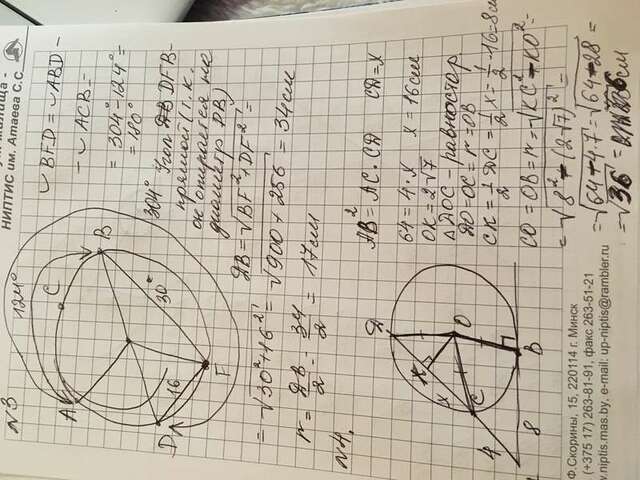 НИПТИС им. Атаева С.С.
N3
124°
A
C
B
D
16
30
F
304°
◡BFD = ◡ABD -
- ◡ACB =
= 304° - 124° =
= 180°
Угол DFB -
прямой (т.к.
он опирается на
диаметр DB)
DB = √BF² + DF² =
= √30² + 16² = √900 + 256 = 34 см
r = DB/2 = 34/2 = 17 см
N4.
D
K
x
O
C
4
8
B
AB² = AC · CD CD = x
64 = 4 · x x = 16 см
OK = 2√7
△DOC - равностор.
DO = OC = r = OB
CK = 1/2 DC = 1/2 x = 1/2 · 16 = 8 см
CO = OB = r = √KC² + KO² =
= √8² + (2√7)² =
= √64 + 4·7 = √64 - 28 =
= √36 = 6 см
Ф.Скорины, 15, 220114 г. Минск
(+375 17) 263-81-91, факс 263-51-21
www.niptis.mas.by, e-mail: up-niptis@rambler.ru